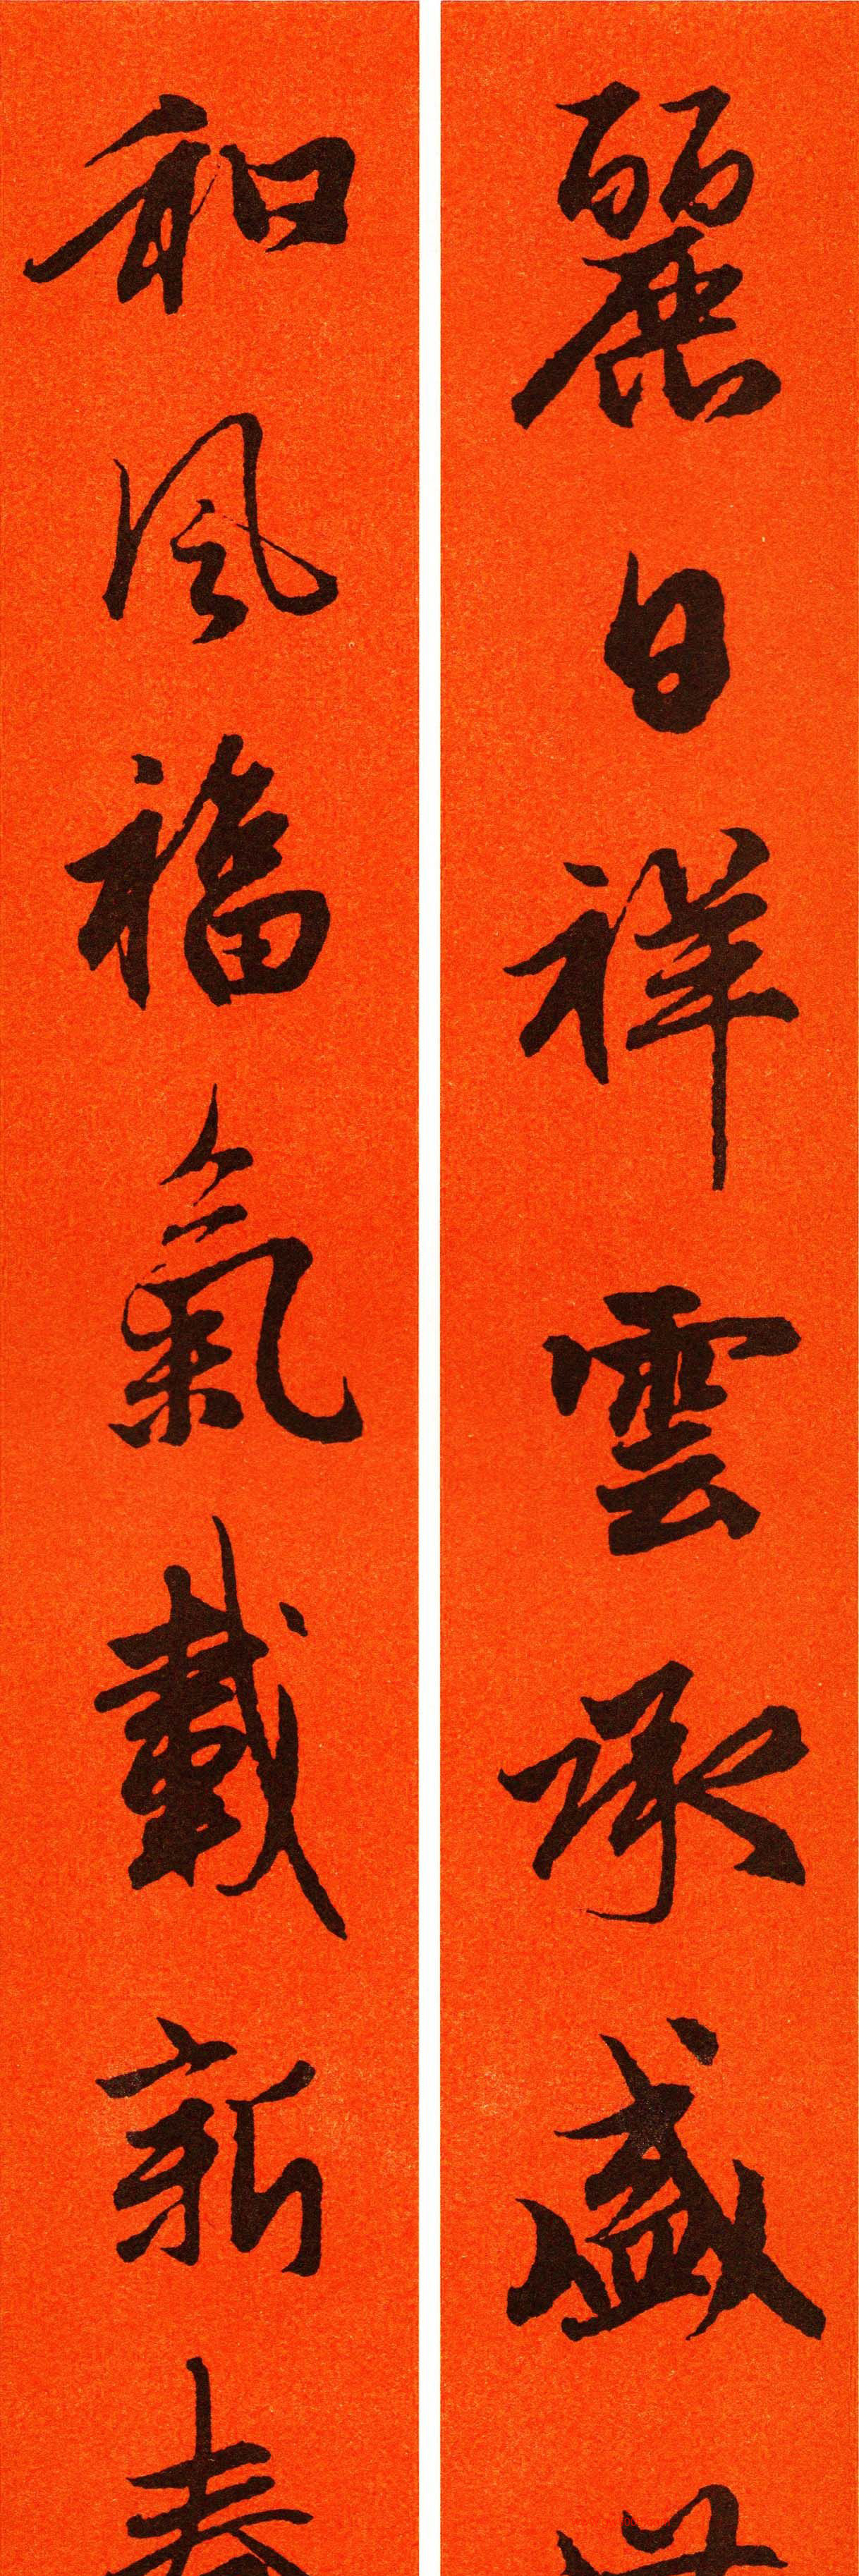 麗日祥雲承盛世
和風福氣載新春